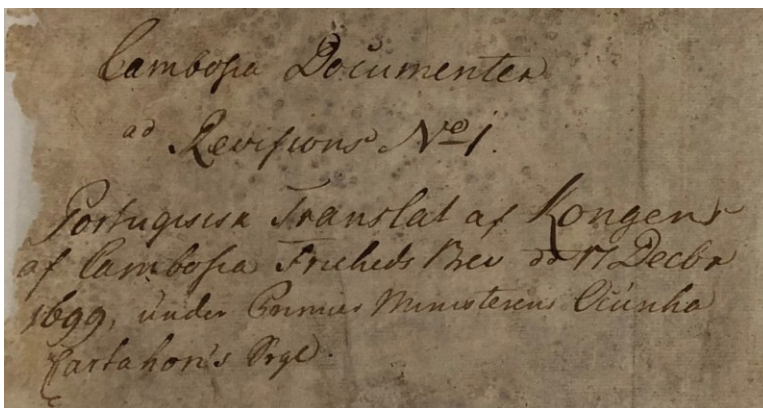 Cambosia Documenter
ad Revisions No 1.
Portugisisk Translat af Kongens
af Cambosia Friheds Brev dd 17 Decbr
1699, under Premier Ministerens
Cartahon's Segl.